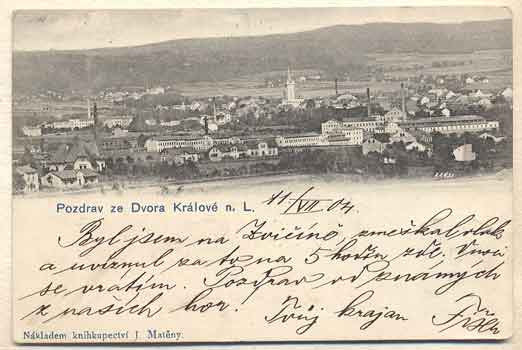 Pozdrav ze Dvora Králové n. L. 11/VII 04.
Byl jsem na Zvičině, zmeškal vlak
a uvíznul za to na 5 hodin zde.
se vratím. Pozdrav od známých
z našich hor. Tvůj krajan
Nákladem knihkupectví J. Matěny.